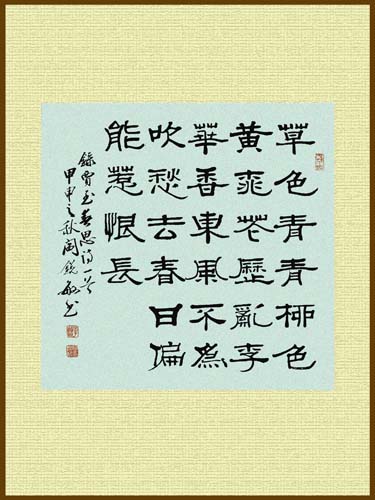 草色青青柳色
黃桃花歷亂李
華香東風不為
吹愁去春日偏
能惹恨長
錄賈至春思詩一首
甲申之秋 書